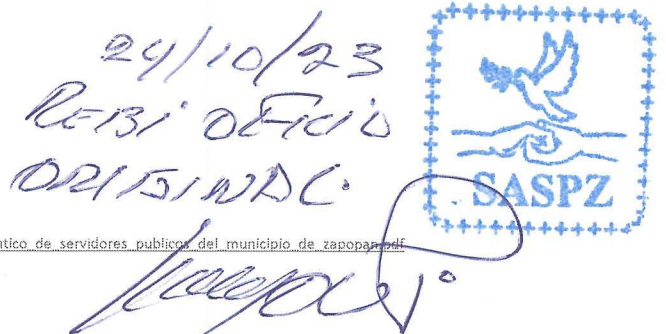 24/10/23
REBI OFICIO
ORIGINAL
SASPZ
ntico_de_servidores_publicos_del_municipio_de_zapopan.pdf